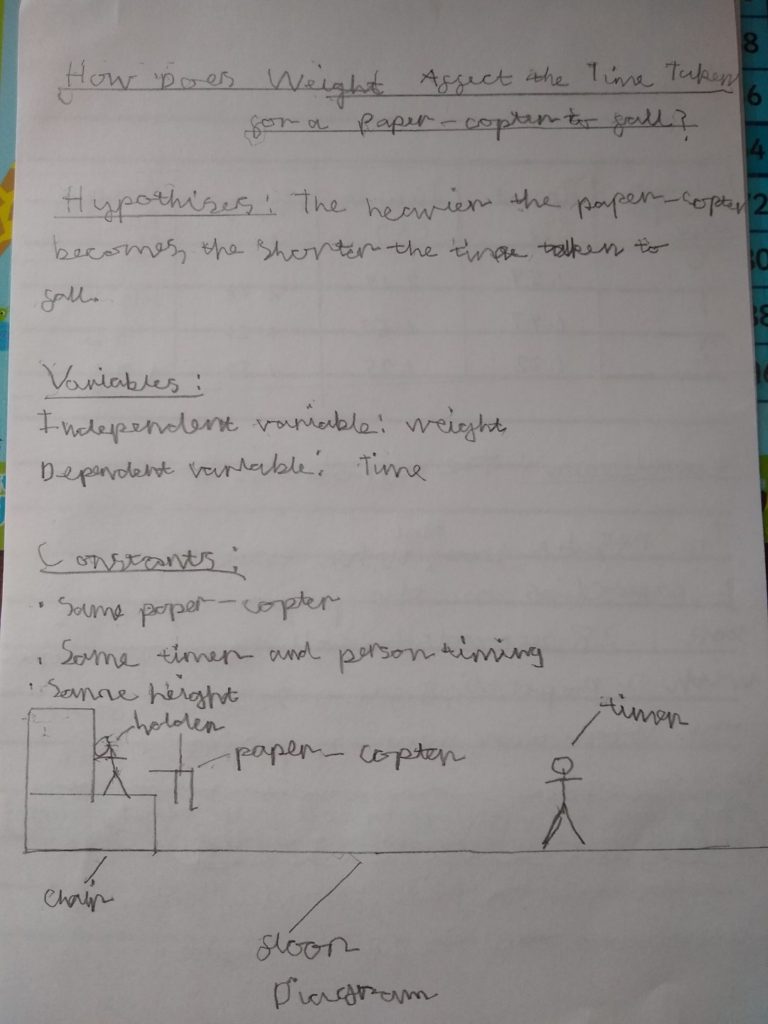 How Does Weight Affect the Time Taken
for a paper-copter to fall?
Hypothises: The heavier the paper-copter
becomes, the shorter the time taken to
fall.
Variables:
Independent variable: weight
Dependent variable: Time
Constants:
· Same paper-copter
· Same timer and person timing
· Same height
holder
timer
paper-copter
chair
floor
Diagram
8
6
4
2